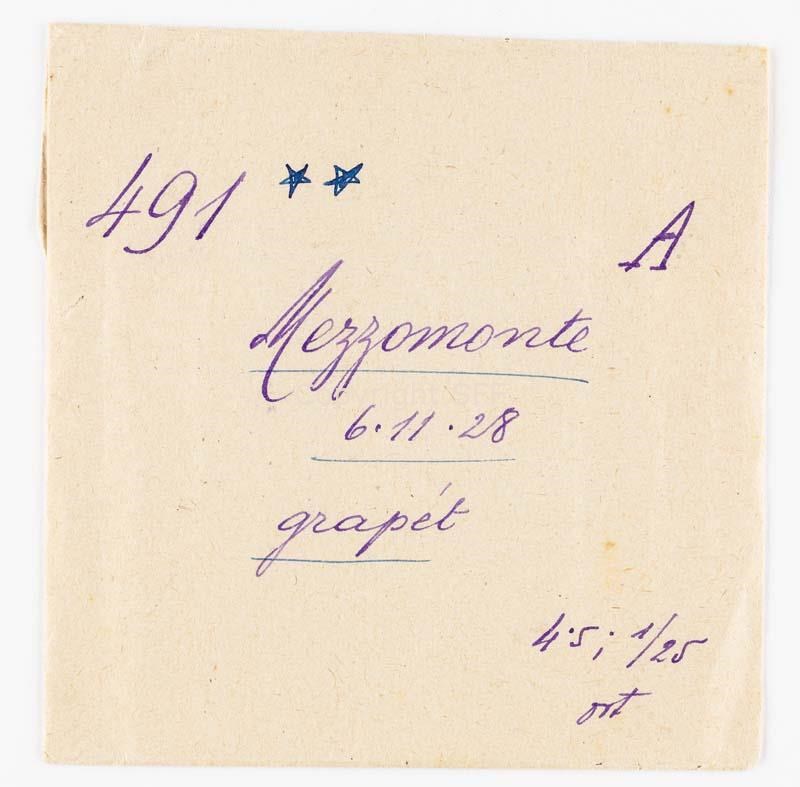 491 ** A
Mezzomonte
6.11.28
grapét
4.5; 1/25
ort